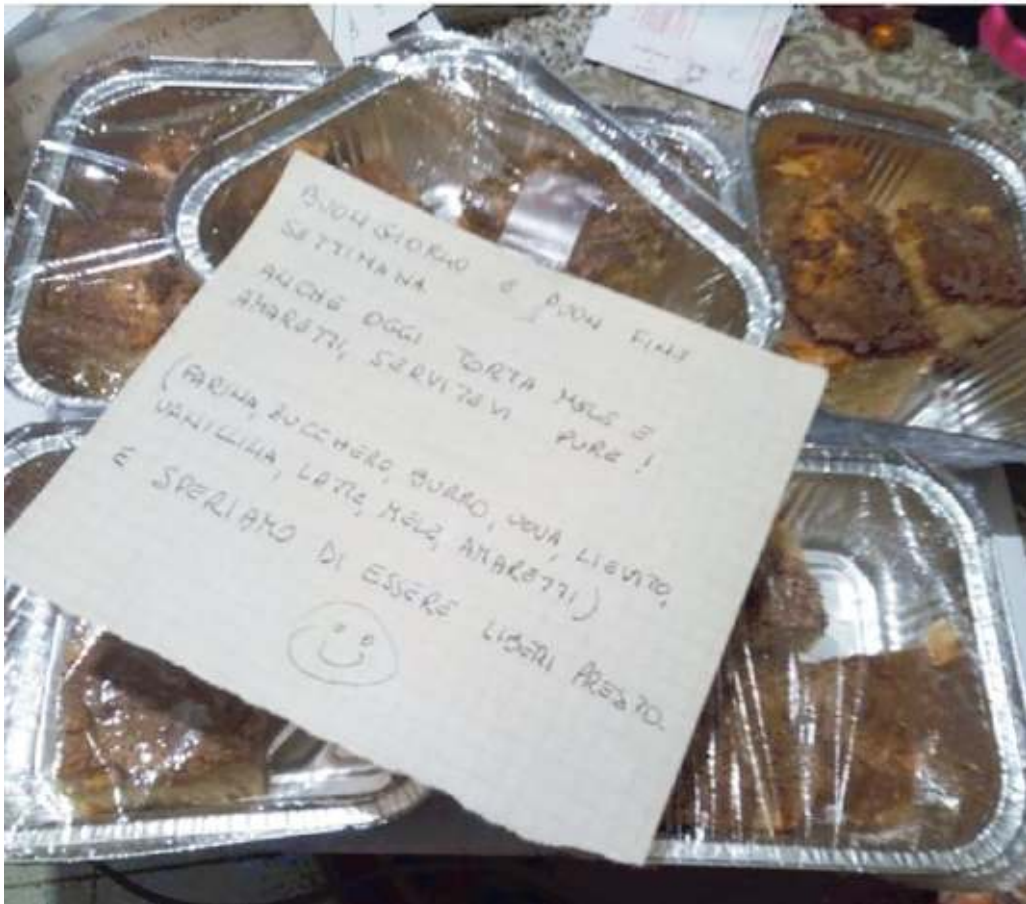 BUONGIORNO E BUON FINE
SETTIMANA
ANCHE OGGI TORTA MELE E
AMARETTI, SERVITEVI PURE!
(FARINA, ZUCCHERO, BURRO, UOVA, LIEVITO,
VANILLINA, LATTE, MELE, AMARETTI)
E SPERIAMO DI ESSERE LIBERI PRESTO.